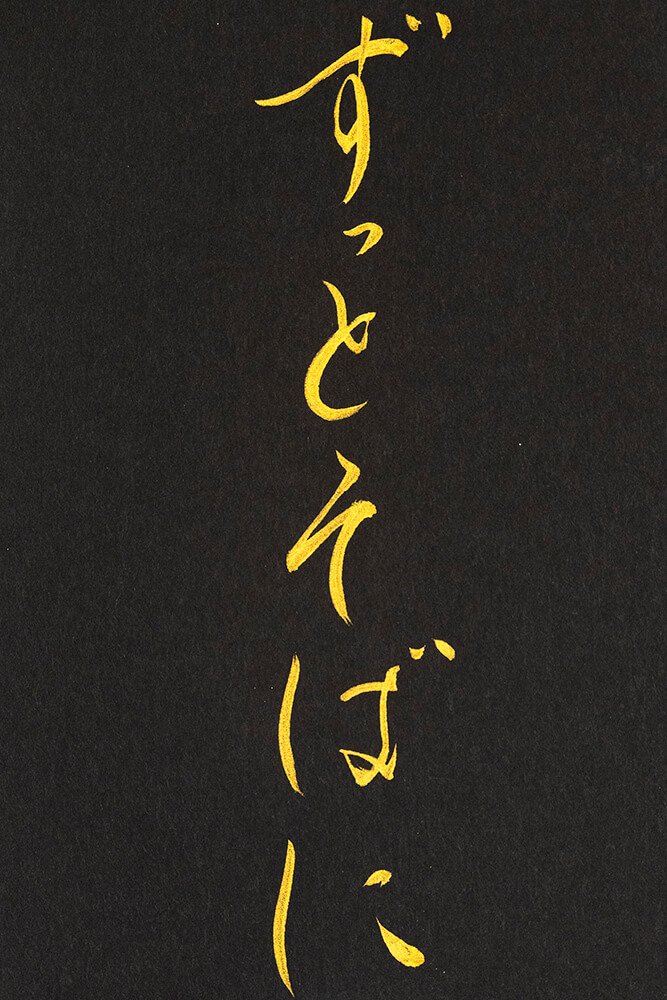 ずっとそばに